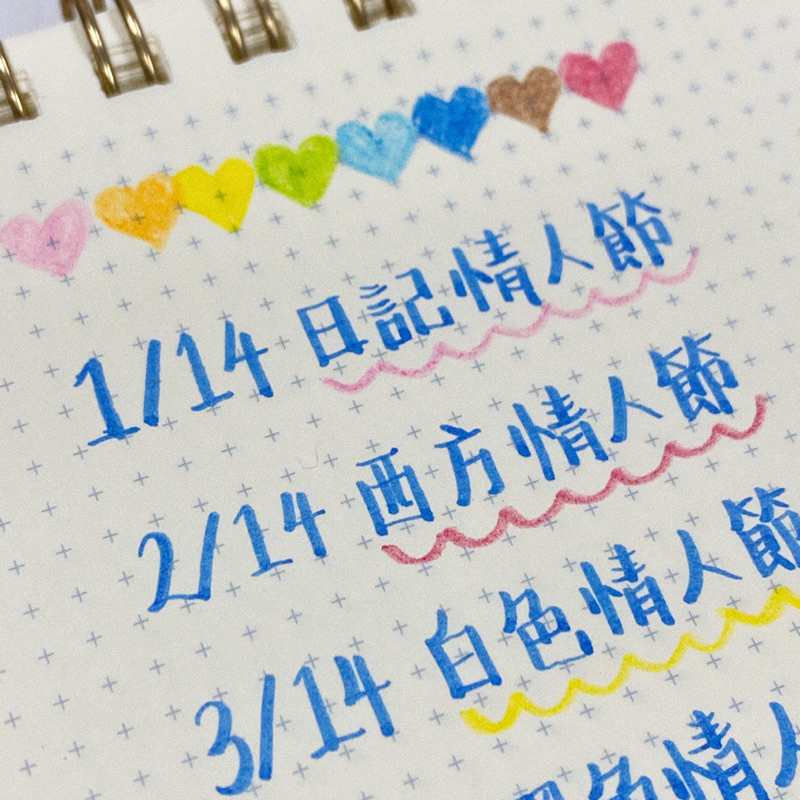 1/14 日記情人節
2/14 西方情人節
3/14 白色情人節
色情人